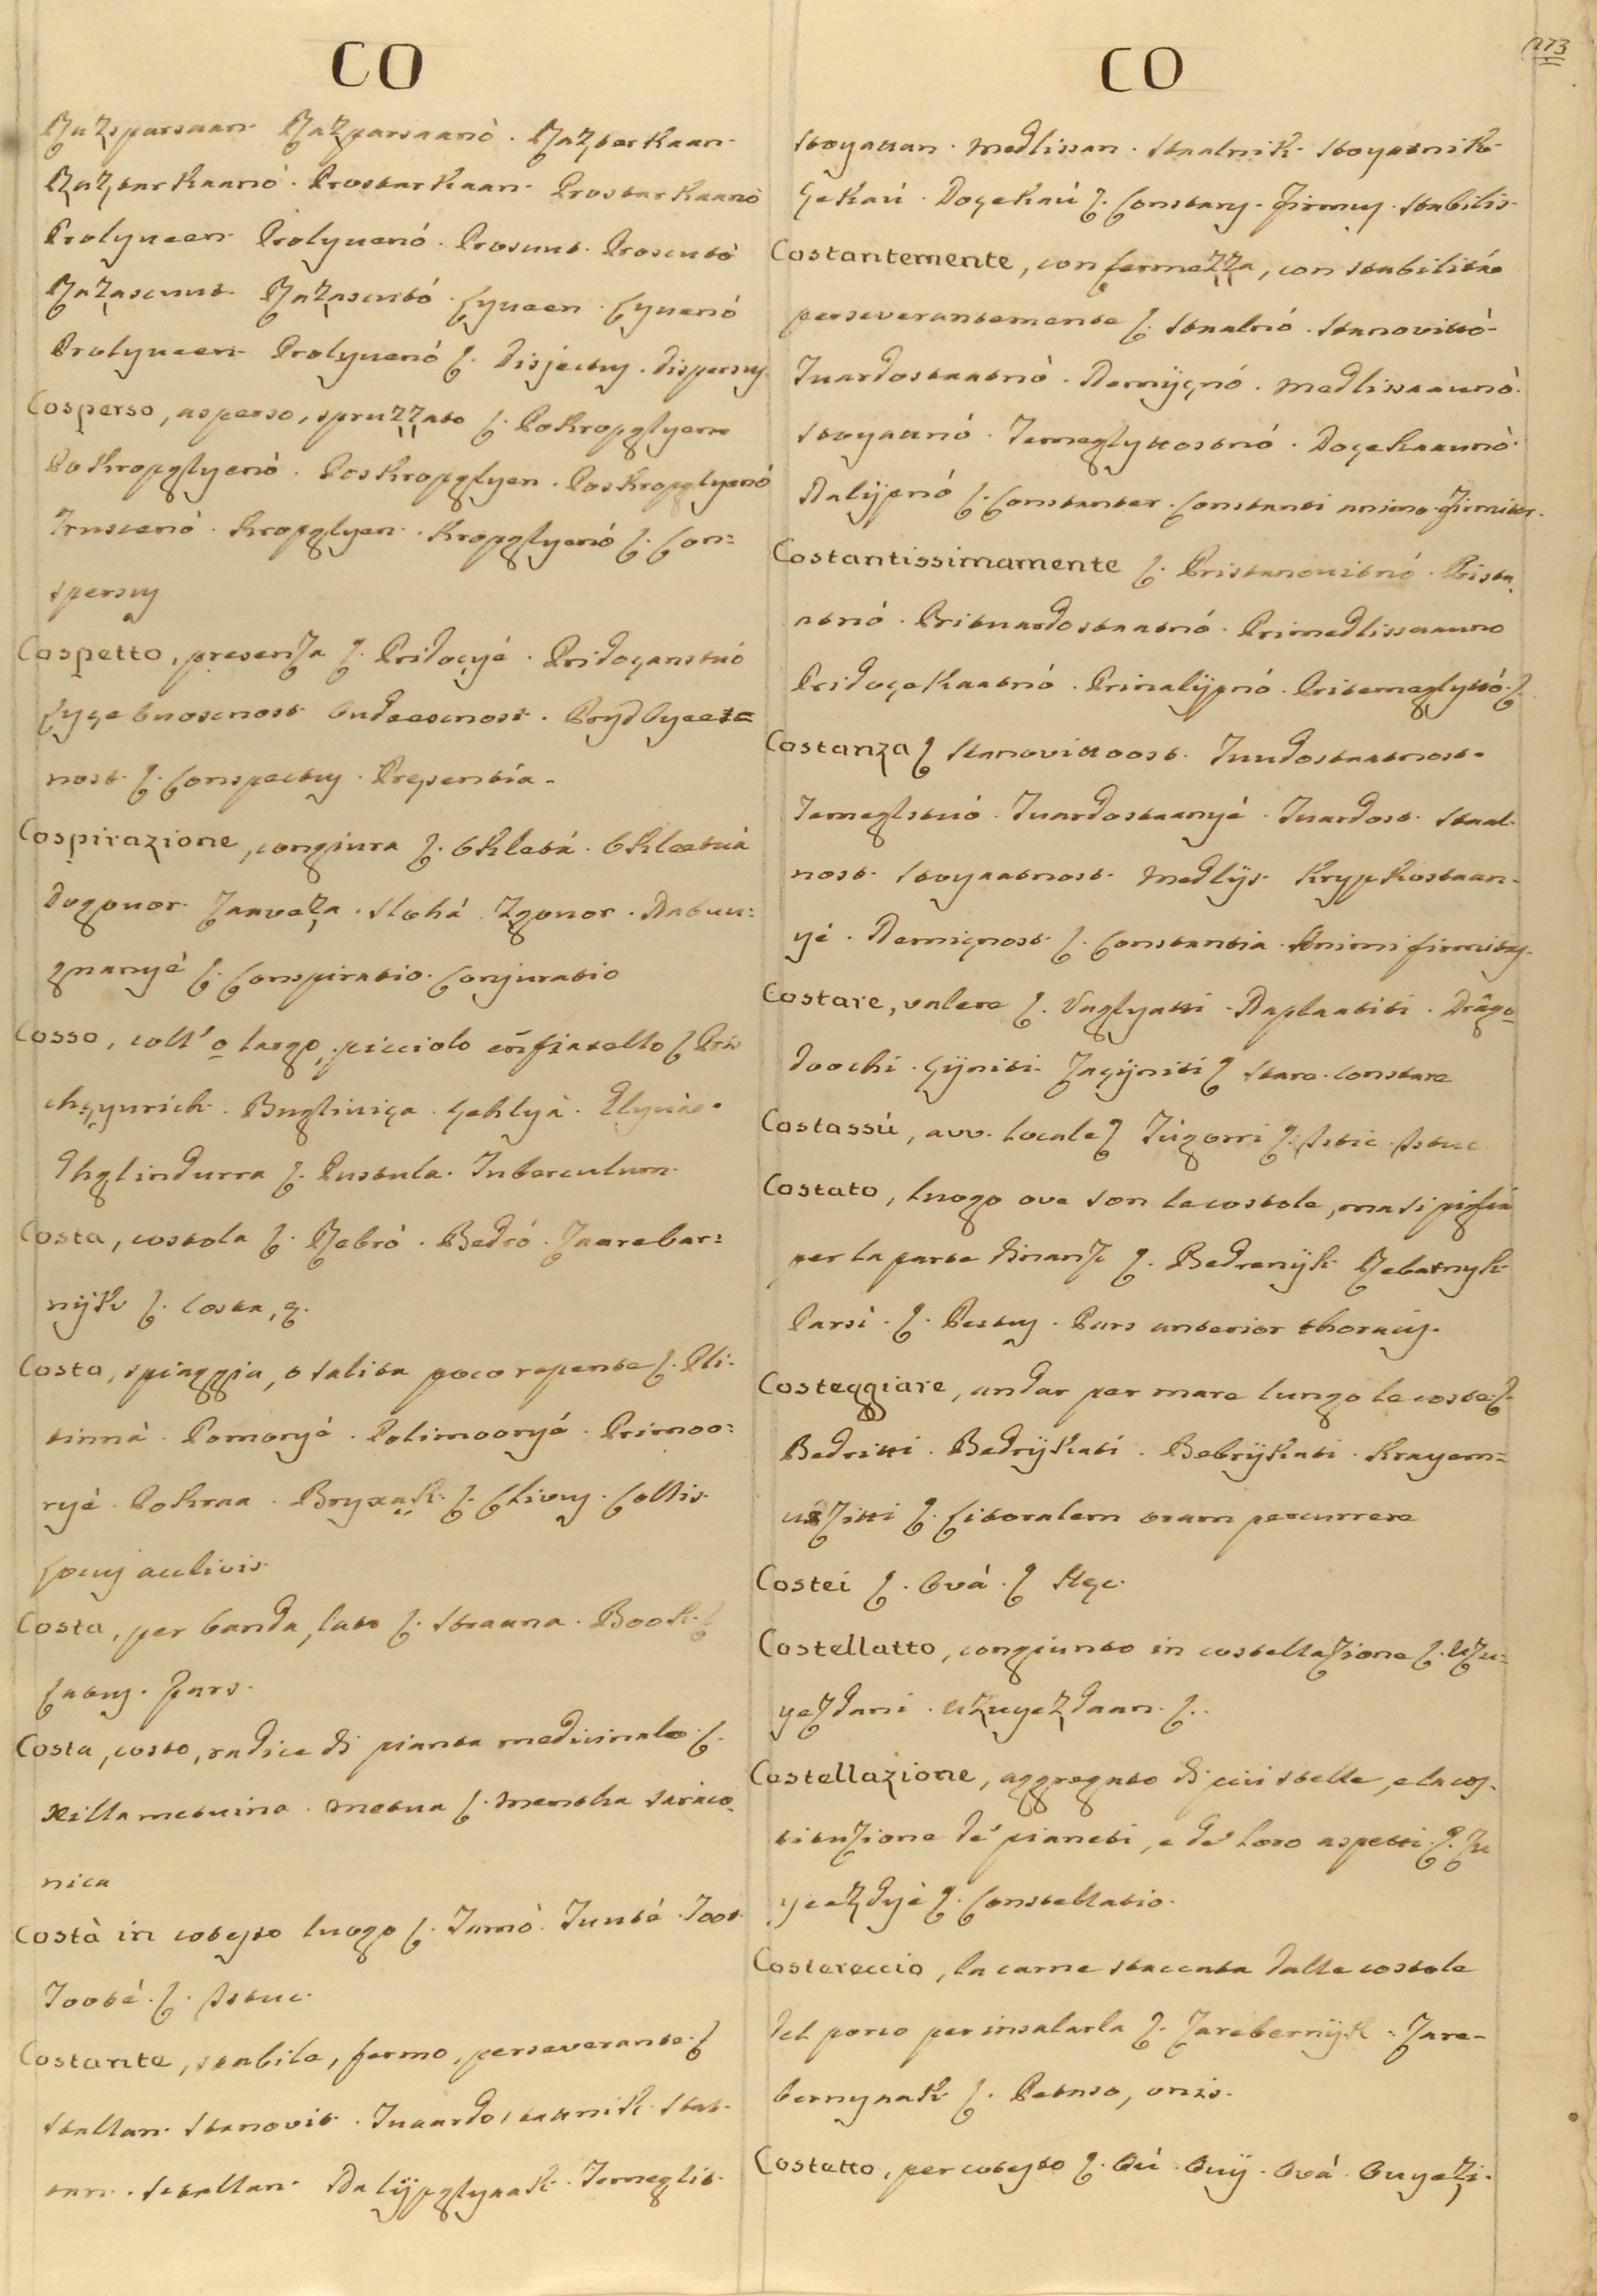 CO
Razsparsaan. Razparsaanò. Razterkaan.
Raztarkaanò. Prostarkaan. Prostarkaanò
Prolyueen. Prolyuenó. Prosuut. Proscutò
Razascuut. Razascutó. Lyueen. Lyuenó
Prolyueen. Prolyuenó L. Disjectus. Dispersus
Cosperso, asperso, spruzzato L. Pokropglyen
Pokropglyenò. Poskropglyen. Poskropglyenó
Trusceno. Kropglyen. Kropglyenó L. Con=
spersus
Cospetto, presenza L. Pridoçyé. Pridoçanstuó
Lyçe buoscnost Oudeescnost. Prydlyeet=
nost. L. Conspectus. Presentia.
Cospirazione, congiura L. Okletá. Okleetuá
Dogouor. Zaaveza. Slohá. Zgouor. Nabuu=
gnanyè L. Conspiratio. Conjuratio
Cosso, coll' o largo, picciolo enfiatello L. Pri
chgyurich. Bugliviça. Çehlyà.
Ghglindurra L. Pustula. Tuberculum.
Costa, costola L. Rebrò. Bedró. Zaarebar=
nijk L. Costa, æ.
Costa, spiaggia, o salita poco repente L. Pli=
tinnà. Pomoryé. Polimooryé. Primoo=
ryè. Pokraa. Bryxak. L. Clivus. Collis.
Locus acclivis.
Costa, per banda, lato L. Straana. Book. L
Latus. Pars.
Costa, costo, radice di pianta medicinale L.
Xilla metuina. Metua L. Mentha saraco=
nica
Costà in cotesto luogo L. Tamò. Tuuté. Toot.
Tooté. L. Istuc.
Costante, stabile, fermo, perseverante. L
Staltan. Stanovit. Tuaardostaunik. Stat=
tan. Staltan. Nalijpglyaak. Temeglit.
CO
173
Stoyattan. Medlissan. Staalnik. Stoyatnik
Çekaú. Doçekaú L. Constans. Firmus. Stabilis.
Costantemente, con fermezza, con stabilitá
perseverantemente L. Staalnó. Stanovittò.
Tuardostaatnò. Nemijçnó. Medlissaaunò.
Stoyattnó. Temeglyttostnó. Doçekaaunò.
Nalijpnó L. Constanter. Constanti animo. Firmiter.
Costantissimamente L. Pristanouitnó. Prista
atnó. Prituardostaatnó. Primedlissaauno
Pridoçekaatnó. Prinalijpnó. Pritemeglyttó. L.
Costanza L Stanovittoost. Tuudostaatnost.
Temeglstuó. Tuardostaanyé. Tuardost. Staal=
nost. Stoyaatnost. Medlijs. Krypkostaan=
yé. Nemiçnost. L. Constantia. Animi firmitas.
Costare, valere L. Vaglyatti. Naplaatiti. Drágo
doochi. Çijniti. Zaçijniti L Stare. Constare
Costassù, avv. locale L Túgorri L. Istic. Istuc
Costato, luogo ove son le costole, ma si piglia
per la parte dinanzi L. Bedrenijk Rebatnyk
Parsi. L. Pectus. Pars anterior thoracis.
Costeggiare, andar per mare lungo le coste. L.
Bedritti. Bedrijkati. Bebrijkati. Krayem=
uozitti L. Litoralem oram percurrere
Costei L. Ová. L Hæc.
Costellatto, congiunto in costellazione L. Uzu=
yezdani. Uzuyezdaan. L..
Costellazione, aggregato di piú stelle, e la cos=
tituzione de' pianeti, e de' loro aspetti. L. Zu
yeezdyè L. Constellatio.
Costereccio, la carne staccata dalle costole
del porco per insalarla L. Zarebernijk. Zare=
bernyaak L. Petaso, onis.
Costetto, per cotesto L. Oú. Ouij. Ová. Ouyezi.